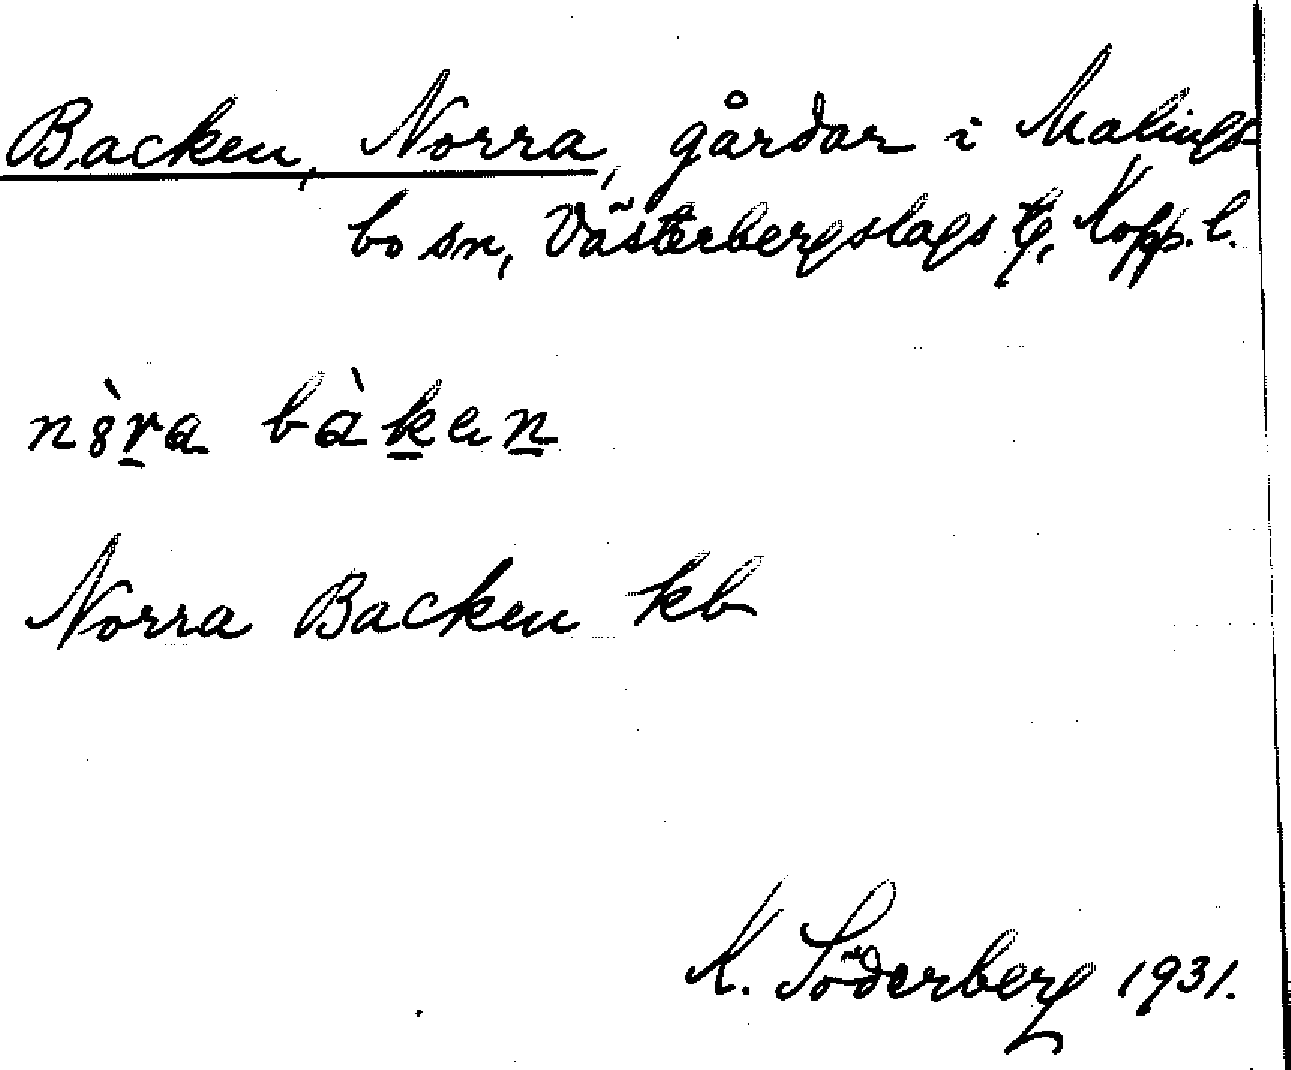 Backen, Norra, gårdar i Malings-
bo sn, Västerbergslags tg, Kopp. l.
nòra bàkan
Norra Backen kb
K. Söderberg 1931.